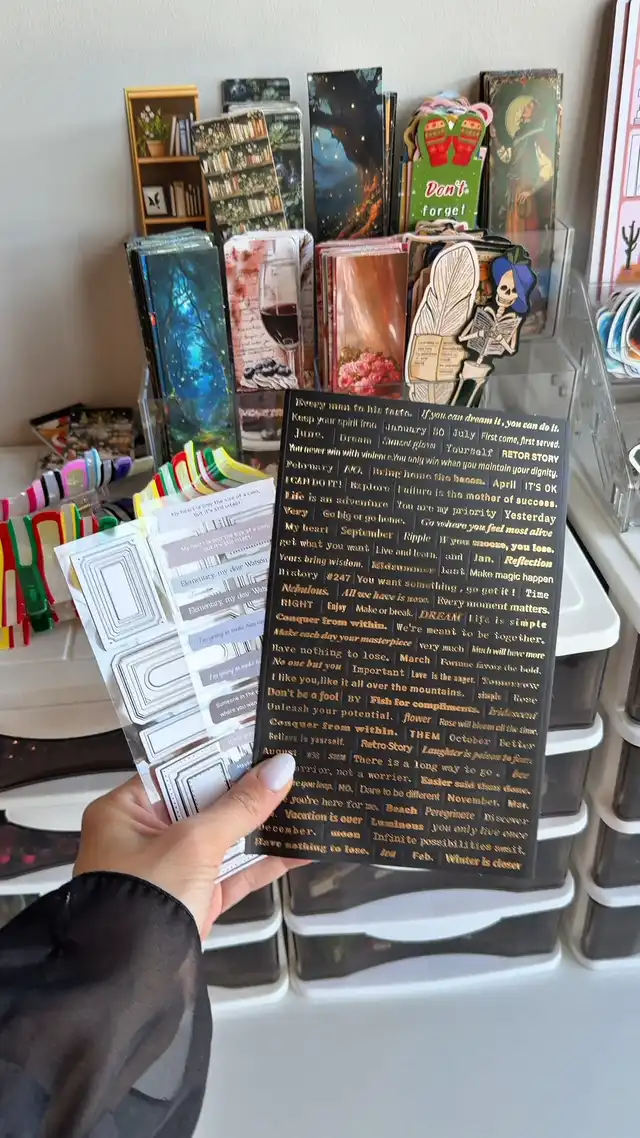 Don't
forget
Every man to his taste. If you can dream it, you can do it.
Keep your spirit free January 30 July First come, first served.
June. Dream Stained glass Yourself RETOR STORY
You never win with violence.You only win when you maintain your dignity.
February NO. Bring home the bacon. April IT'S OK
I CAN DO IT! Explore Failure is the mother of success.
Life is an adventure You are my priority Yesterday
Very Go big or go home. Go where you feel most alive
My heart September Ripple If you snooze, you lose.
get what you want Live and learn. and Jan. Reflection
Years bring wisdom. Midsummer last Make magic happen
History #247 You want something, go get it! Time
Nebulous. All we have is now. Every moment matters.
RIGHT Enjoy Make or break. DREAM Life is simple
Conquer from within. We're meant to be together.
Make each day your masterpiece very much
Have nothing to lose. March Fortune favors the bold.
No one but you Important Love is the anger. Tomorrow
I like you,like it all over the mountains. simple Rose
Don't be a fool BY Fish for compliments. Iridescent
Unleash your potential. flower Rose will bloom all the time.
Conquer from within. THEM October Better
Believe in yourself. Retro Story Laughter is poison to fear.
August There is a long way to go.
warrior, not a worrier. Easier said than done.
you leap. NO. Dare to be different November. Mar.
you're here for me. Beach Peregrinate Discover
Vacation is over Luminous you only live once
December. moon Infinite possibilities await.
Have nothing to lose. Feb. Winter is closer
My heart is only the size of a coin,
but it's still intact
My heart is only the size of a coin,
but it's still intact
Elementary my dear Watson
Elementary my dear Watson
I'm going to make
I'm going to make
Someone in the
where you